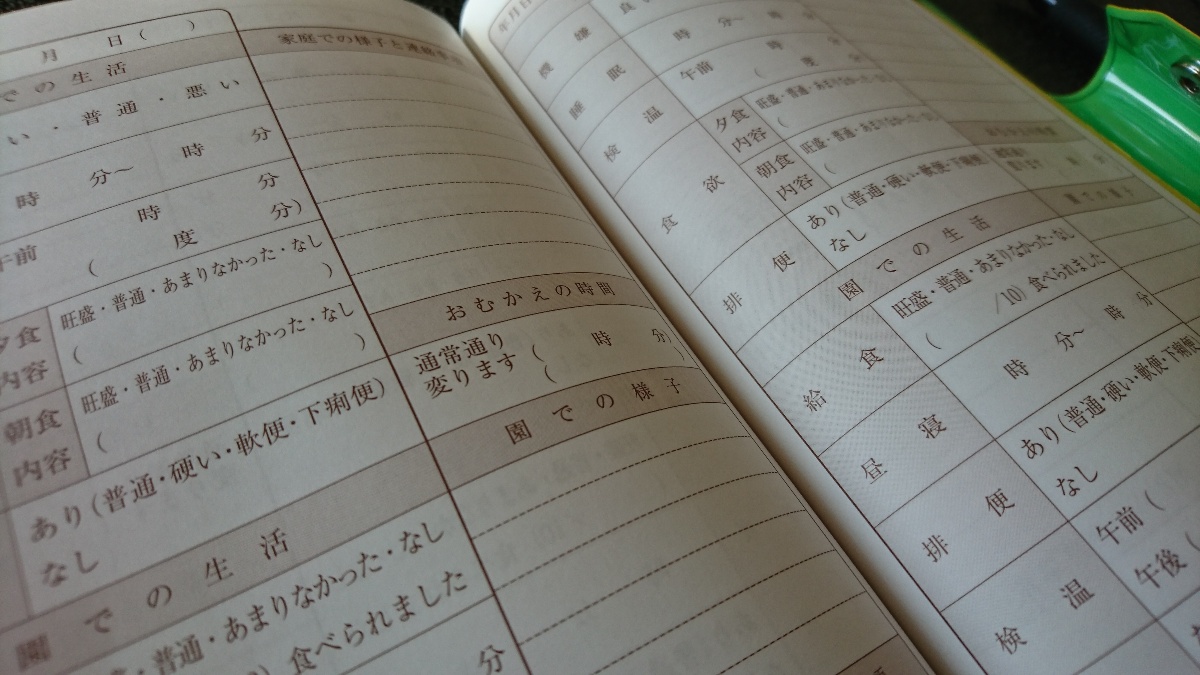 月 日( )
での生活
い・普通・悪い
時 分～ 時 分
時 分
午前 ( 度 分)
夕食 内容
旺盛・普通・あまりなかった・なし
( )
朝食 内容
旺盛・普通・あまりなかった・なし
( )
あり(普通・硬い・軟便・下痢便)
なし
園での生活
・普通・あまりなかった・なし
) 食べられました
分
家庭での様子と連絡事項
おむかえの時間
通常通り
変ります ( 時 分)
園での様子
年月日
機嫌
良い
睡眠
時 分～ 時 分
検温
午前 ( 度 分
食欲
夕食 内容
旺盛・普通・あまりなかった・なし
(
朝食 内容
旺盛・普通・あまりなかった・なし
(
排便
あり(普通・硬い・軟便・下痢便
なし
園での生活
給食
旺盛・普通・あまりなかった・なし
( /10) 食べられました
昼寝
時 分～ 時 分
排便
あり(普通・硬い・軟便・下痢便
なし
検温
午前(
午後(